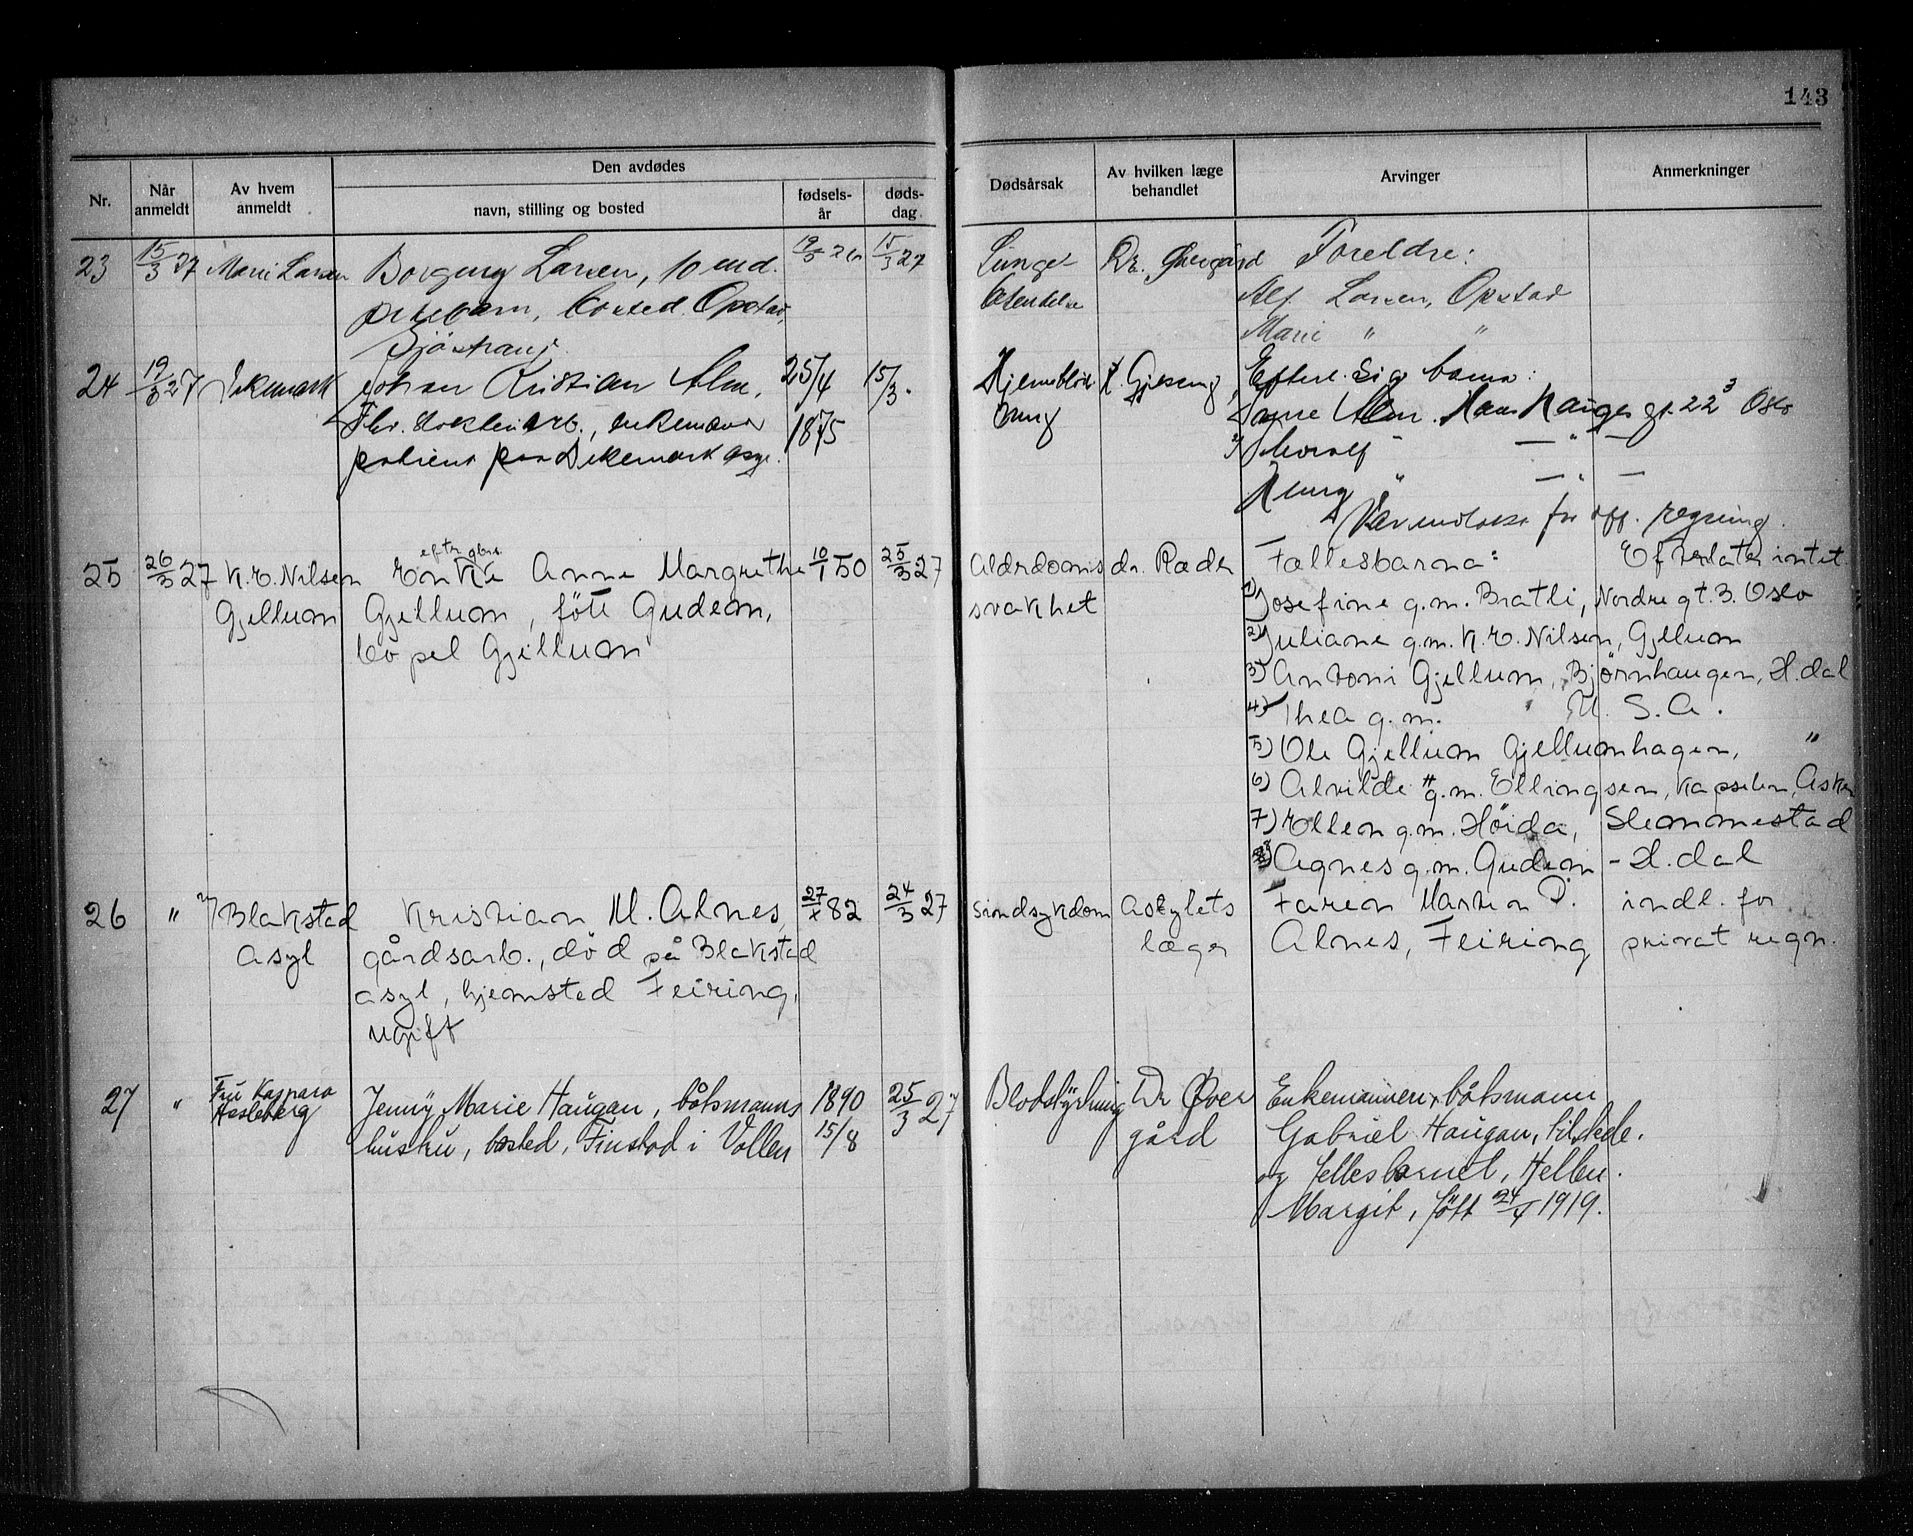 143
Nr.
Når anmeldt
Av hvem anmeldt
Den avdødes
navn, stilling og bosted
fødsels-år
døds-dag
Dødsårsak
Av hvilken læge behandlet
Arvinger
Anmerkninger
23 15/3 27 Marie Larsen
Borgeny Larsen, 10 mnd.
pikebarn, bosted Opstad,
Sjøstrand
19/5 26 15/3 27
Lunge-
betendelse
Dr. Øvergård
Foreldre:
Alf Larsen, Opstad
Marie " "
24 19/3 27 Dikemark
Johan Kristian Alm,
Fhv. arb., enkemann
patient paa Dikemark asyl.
25/4
1875
15/3.
Hjerneblöd-
ning
Gjessing
Efterl. sig barna:
Alm. Hans Hauges gt. 22³ Oslo
2) Thoralf " — " —
Henry " — " —
for off. regning.
25 26/3 27 K.E. Nilsen
Gjellum
efter gbr.
Enke Anne Margrethe
Gjellum, föt Gudem,
bopel Gjellum
10/1 50 25/3 27
Alderdoms
svakhet
dr. Ræder
Fællesbarna:
Efterlater intet
1) Josefine g.m. Bratli, Nordre gt. 3. Oslo
2) Juliane g.m. K.E. Nilsen, Gjellum
3) Antoni Gjellum, Bjørnhaugen, H.dal
4) Thea g.m. U.S.A.
5) Ole Gjellum Gjellumhagen, "
6) Alvilde g.m. Ellingsen, Kapselen, Asker
7) Ellen g.m. Höida, Slemmestad
8) Agnes g.m. Gudem - H.dal
26 " Blakstad
Asyl
Kristian M. Alnes,
gårdsarb., död på Blakstad
asyl, hjemsted Feiring,
ugift
27/x 82 24/3 27
Sindsykdom
Asylets
læger
Faren Marten P.
Alnes, Feiring
indl. for
privat regn.
27 " Fru Kaspara
Hasleberg
Jenny Marie Haugan, båtsmanns
hustru, bosted, Finstad i Vollen
1890
15/8
25/3 27
Blodstyrtning
Dr Över
gård
Enkemannen, båtsmann
Gabriel Haugan, tilstede.
og fellesbarnet, Hellen
Margit, født 24/4 1919.